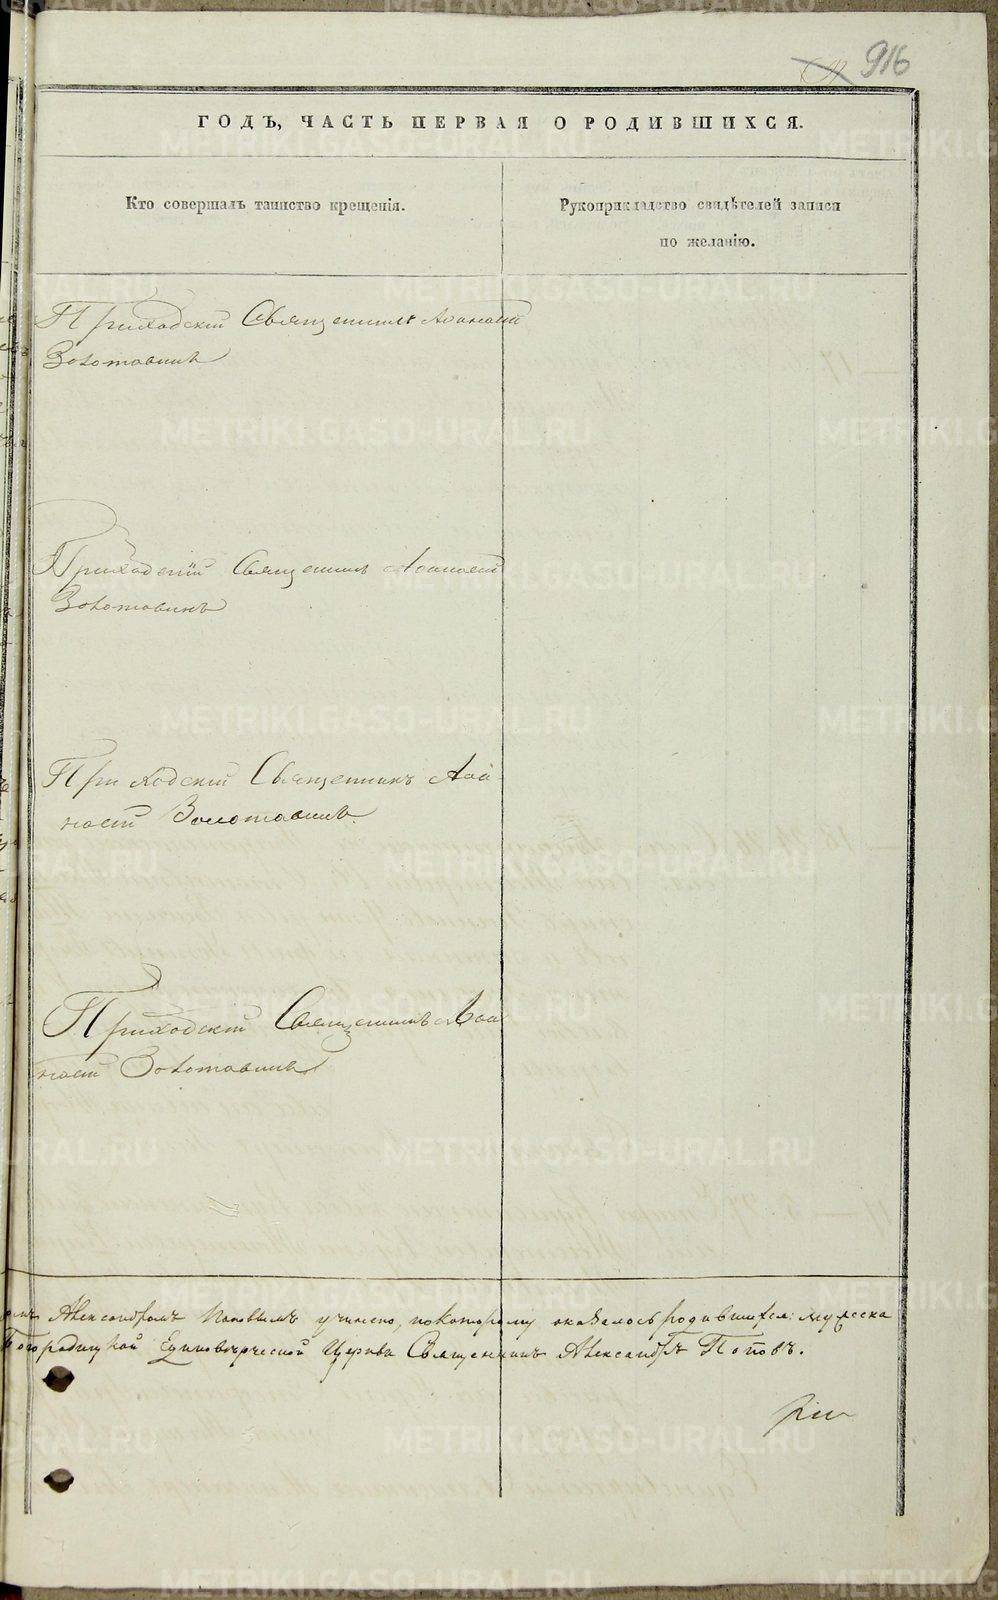 916
ГОДЪ, ЧАСТЬ ПЕРВАЯ О РОДИВШИХСЯ.
Кто совершалъ таинство крещенія.
Рукоприкладство свидѣтелей записи
по желанію.
Приходскій Священникъ Аѳанасій
Золотавинъ
Приходскій Священникъ Аѳанасій
Золотавинъ
Приходскій Священникъ Аѳа
насій Золотавинъ
Приходскій Священникъ Аѳа
насій Золотавинъ
Александромъ Поповымъ учинено, по которому оказалось родившихся: мужеска
Богородицкой Единовѣрческой Церкви Священникъ Александръ Поповъ.
METRIKI.GASO-URAL.RU